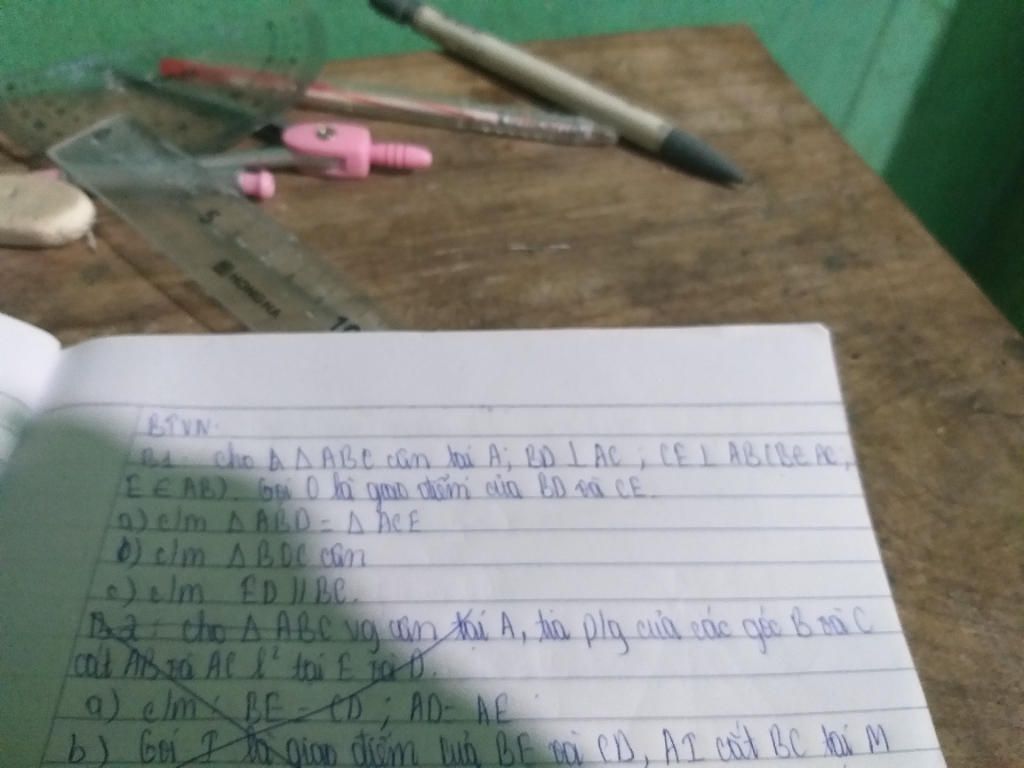 5
HONG HA
10
BTVN:
B1: cho Δ Δ ABC cân tại A; BD ⊥ AC ; CE ⊥ AB (BE AC,
E ∈ AB). Gọi O là giao điểm của BD và CE.
a) c/m Δ ABD = Δ ACE
b) c/m Δ BOC cân
c) c/m ED // BC.
B2: cho Δ ABC vg cân tại A, tia p/g của các góc B và C
cắt AB và AC l² tại E và D.
a) c/m: BE = CD ; AD = AE
b) Gọi I là giao điểm của BE và CD, AI cắt BC tại M